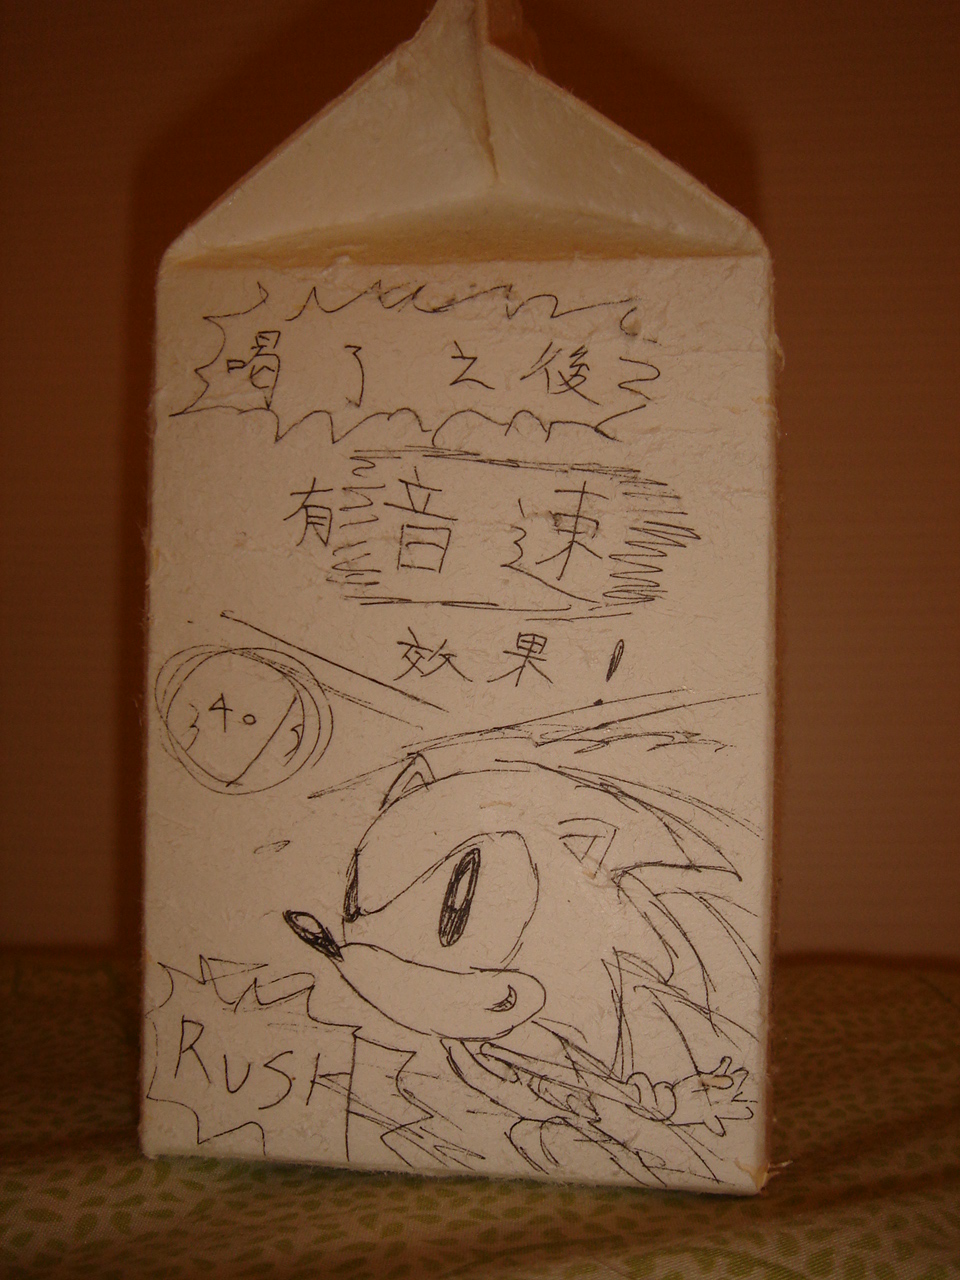 喝了之後
有音速
效果!
40
RUSH